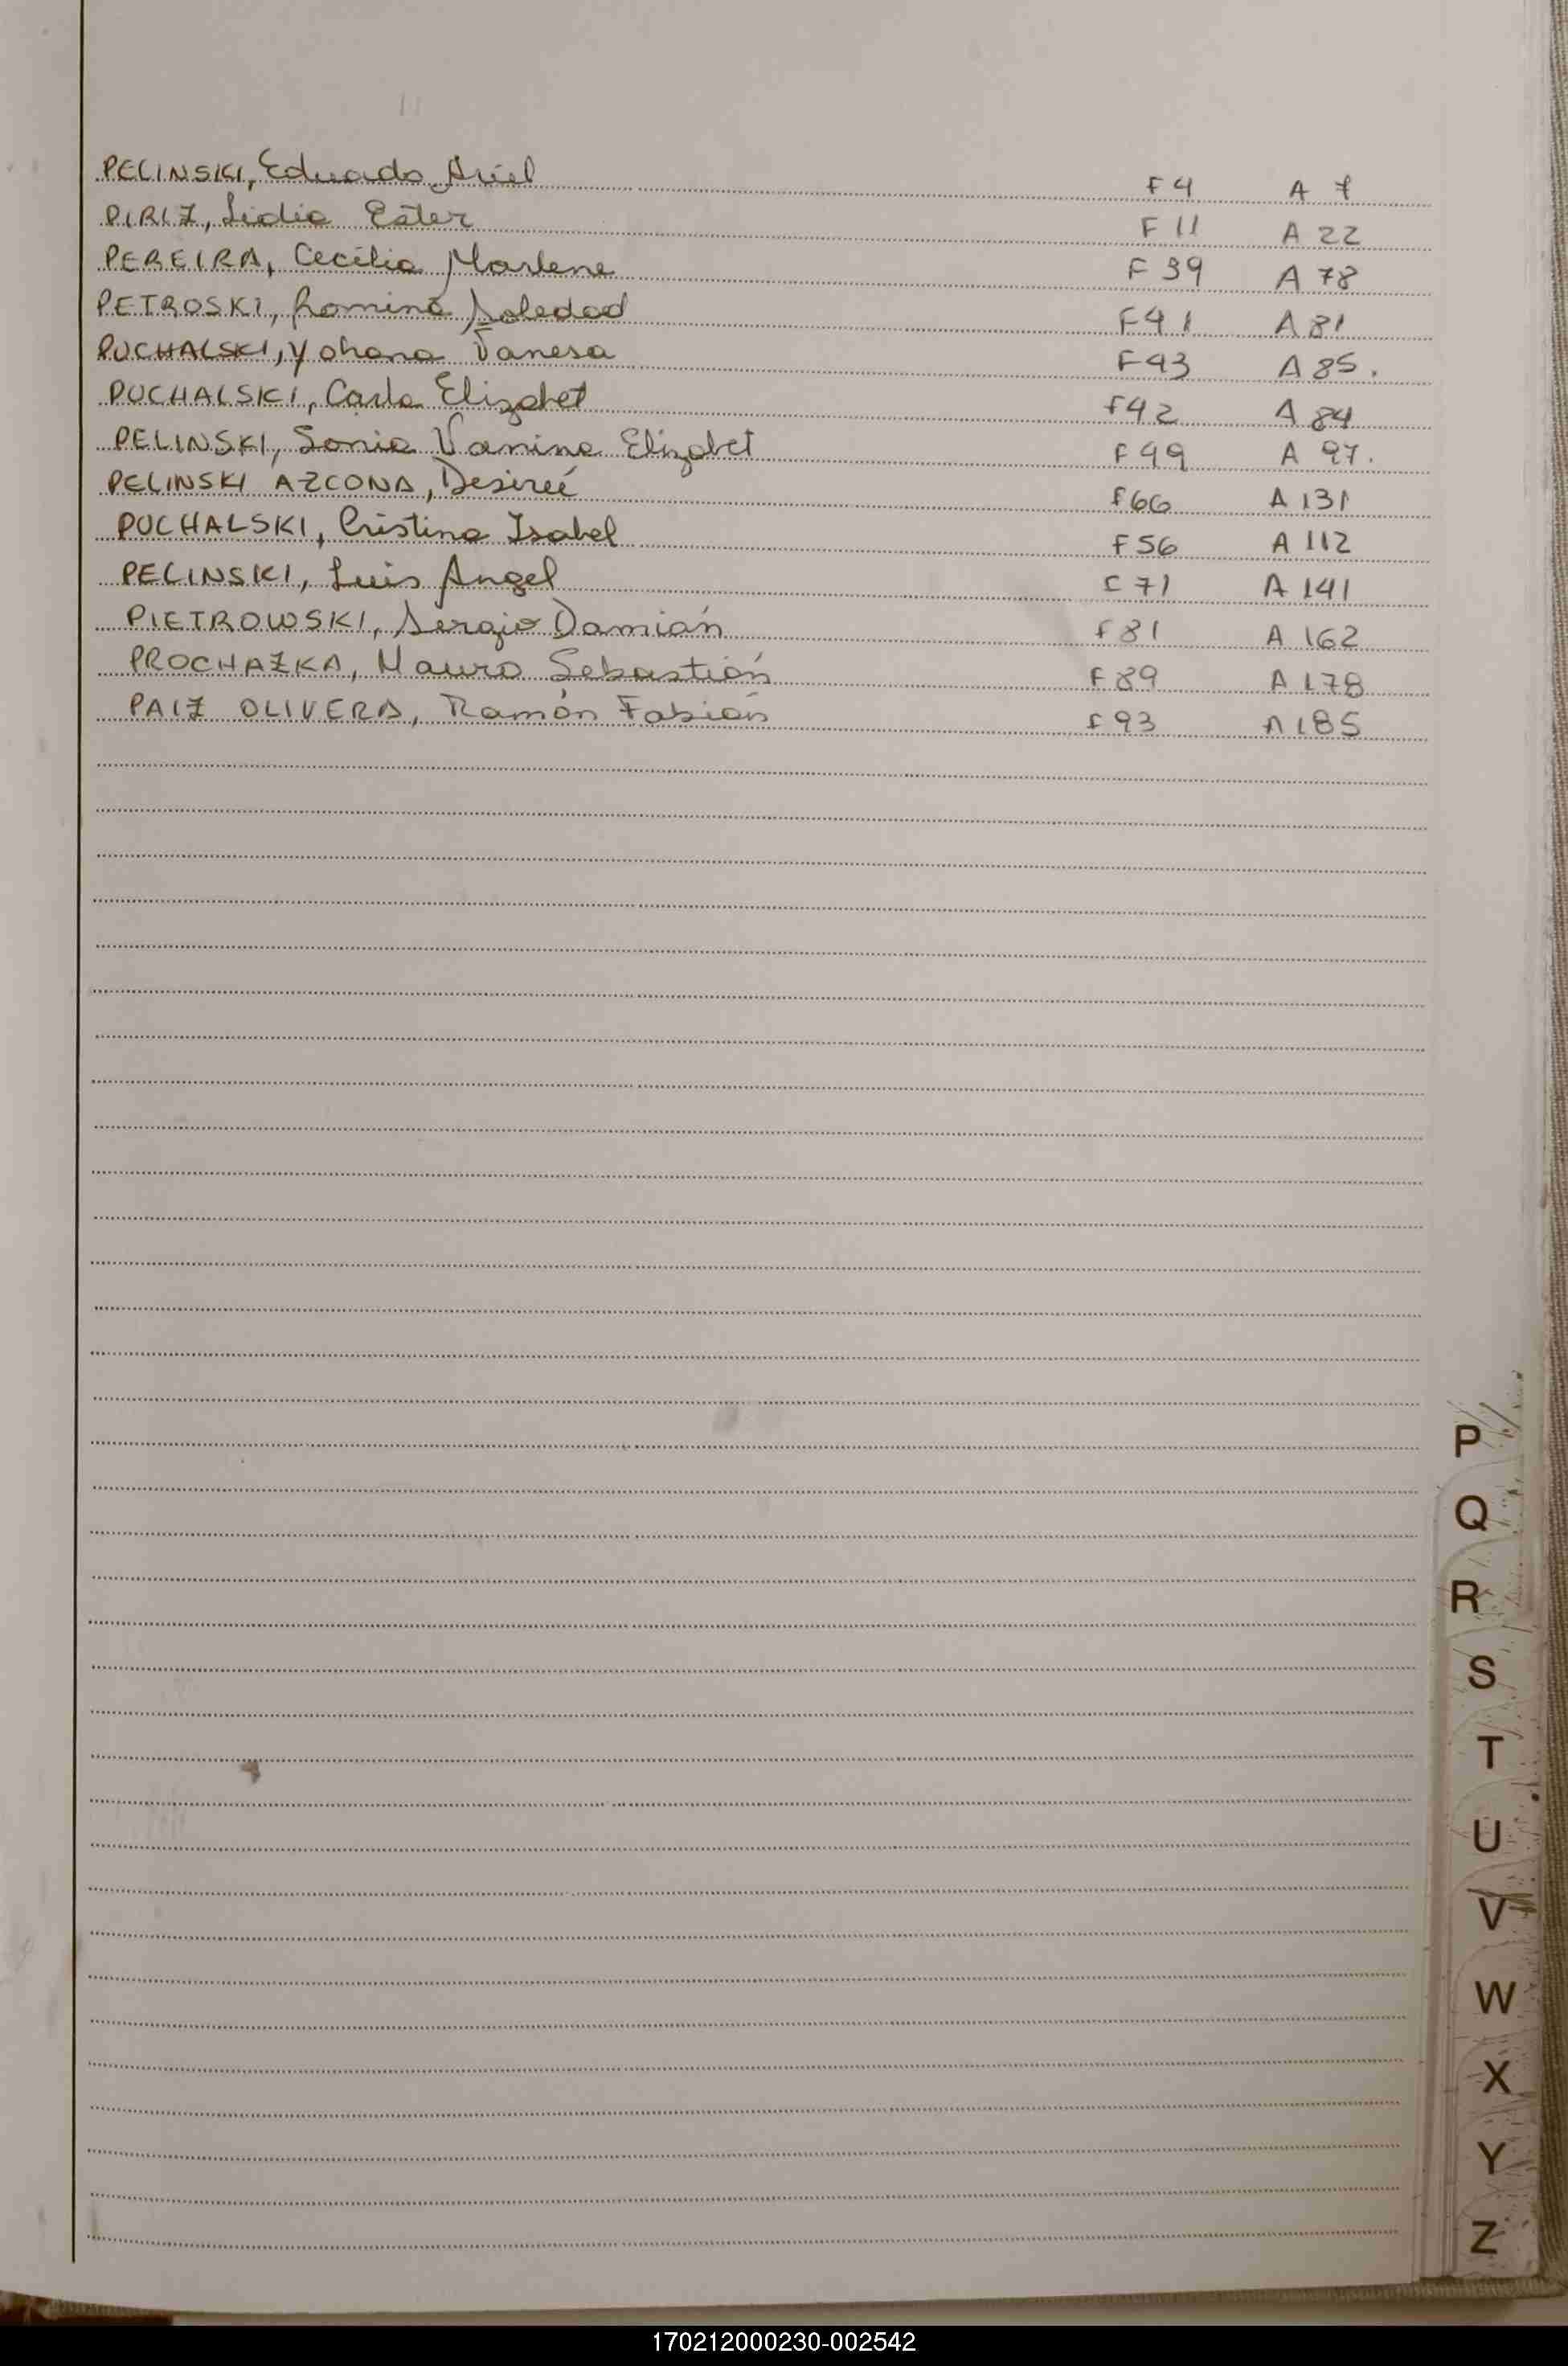 PELINSKI, Eduardo Ariel F 4 A 7
PIRIZ, Lidia Ester F 11 A 22
PEREIRA, Cecilia Marlene F 39 A 78
PETROSKI, Romina Soledad F 41 A 81
PUCHALSKI, Yohana Vanesa F 43 A 85.
PUCHALSKI, Carla Elizabet F 42 A 84
PELINSKI, Sonia Vanina Elizabet F 49 A 97.
PELINSKI AZCONA, Desireé F 66 A 131
PUCHALSKI, Cristina Isabel F 56 A 112
PELINSKI, Luis Angel F 71 A 141
PIETROWSKI, Sergio Damián F 81 A 162
PROCHAZKA, Mauro Sebastián F 89 A 178
PAIZ OLIVERA, Ramón Fabián F 93 A 185
P
Q
R
S
T
U
V
W
X
Y
Z
170212000230-002542